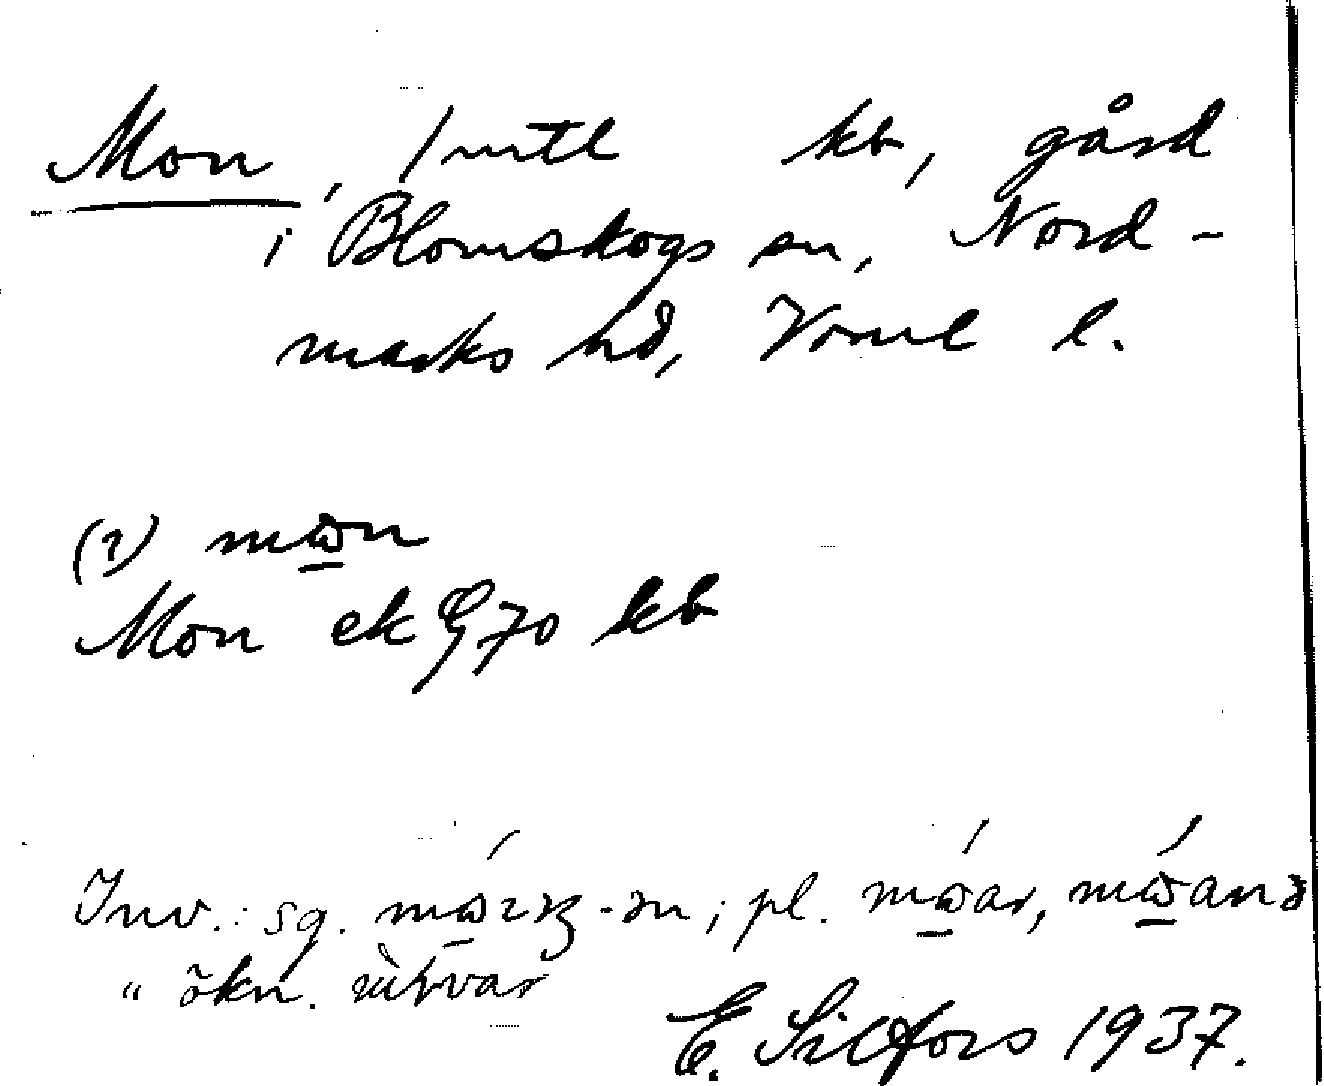 Mon, 1 mtl kb, gård
i Blomskogs sn, Nord-
marks hd, Värml l.
(?) mωn
Mon ek E 70 kb
Inv.: sg. -ən; pl. mώ̲ar, mώ̲anə
" ökn.
E. Silfors 1937.